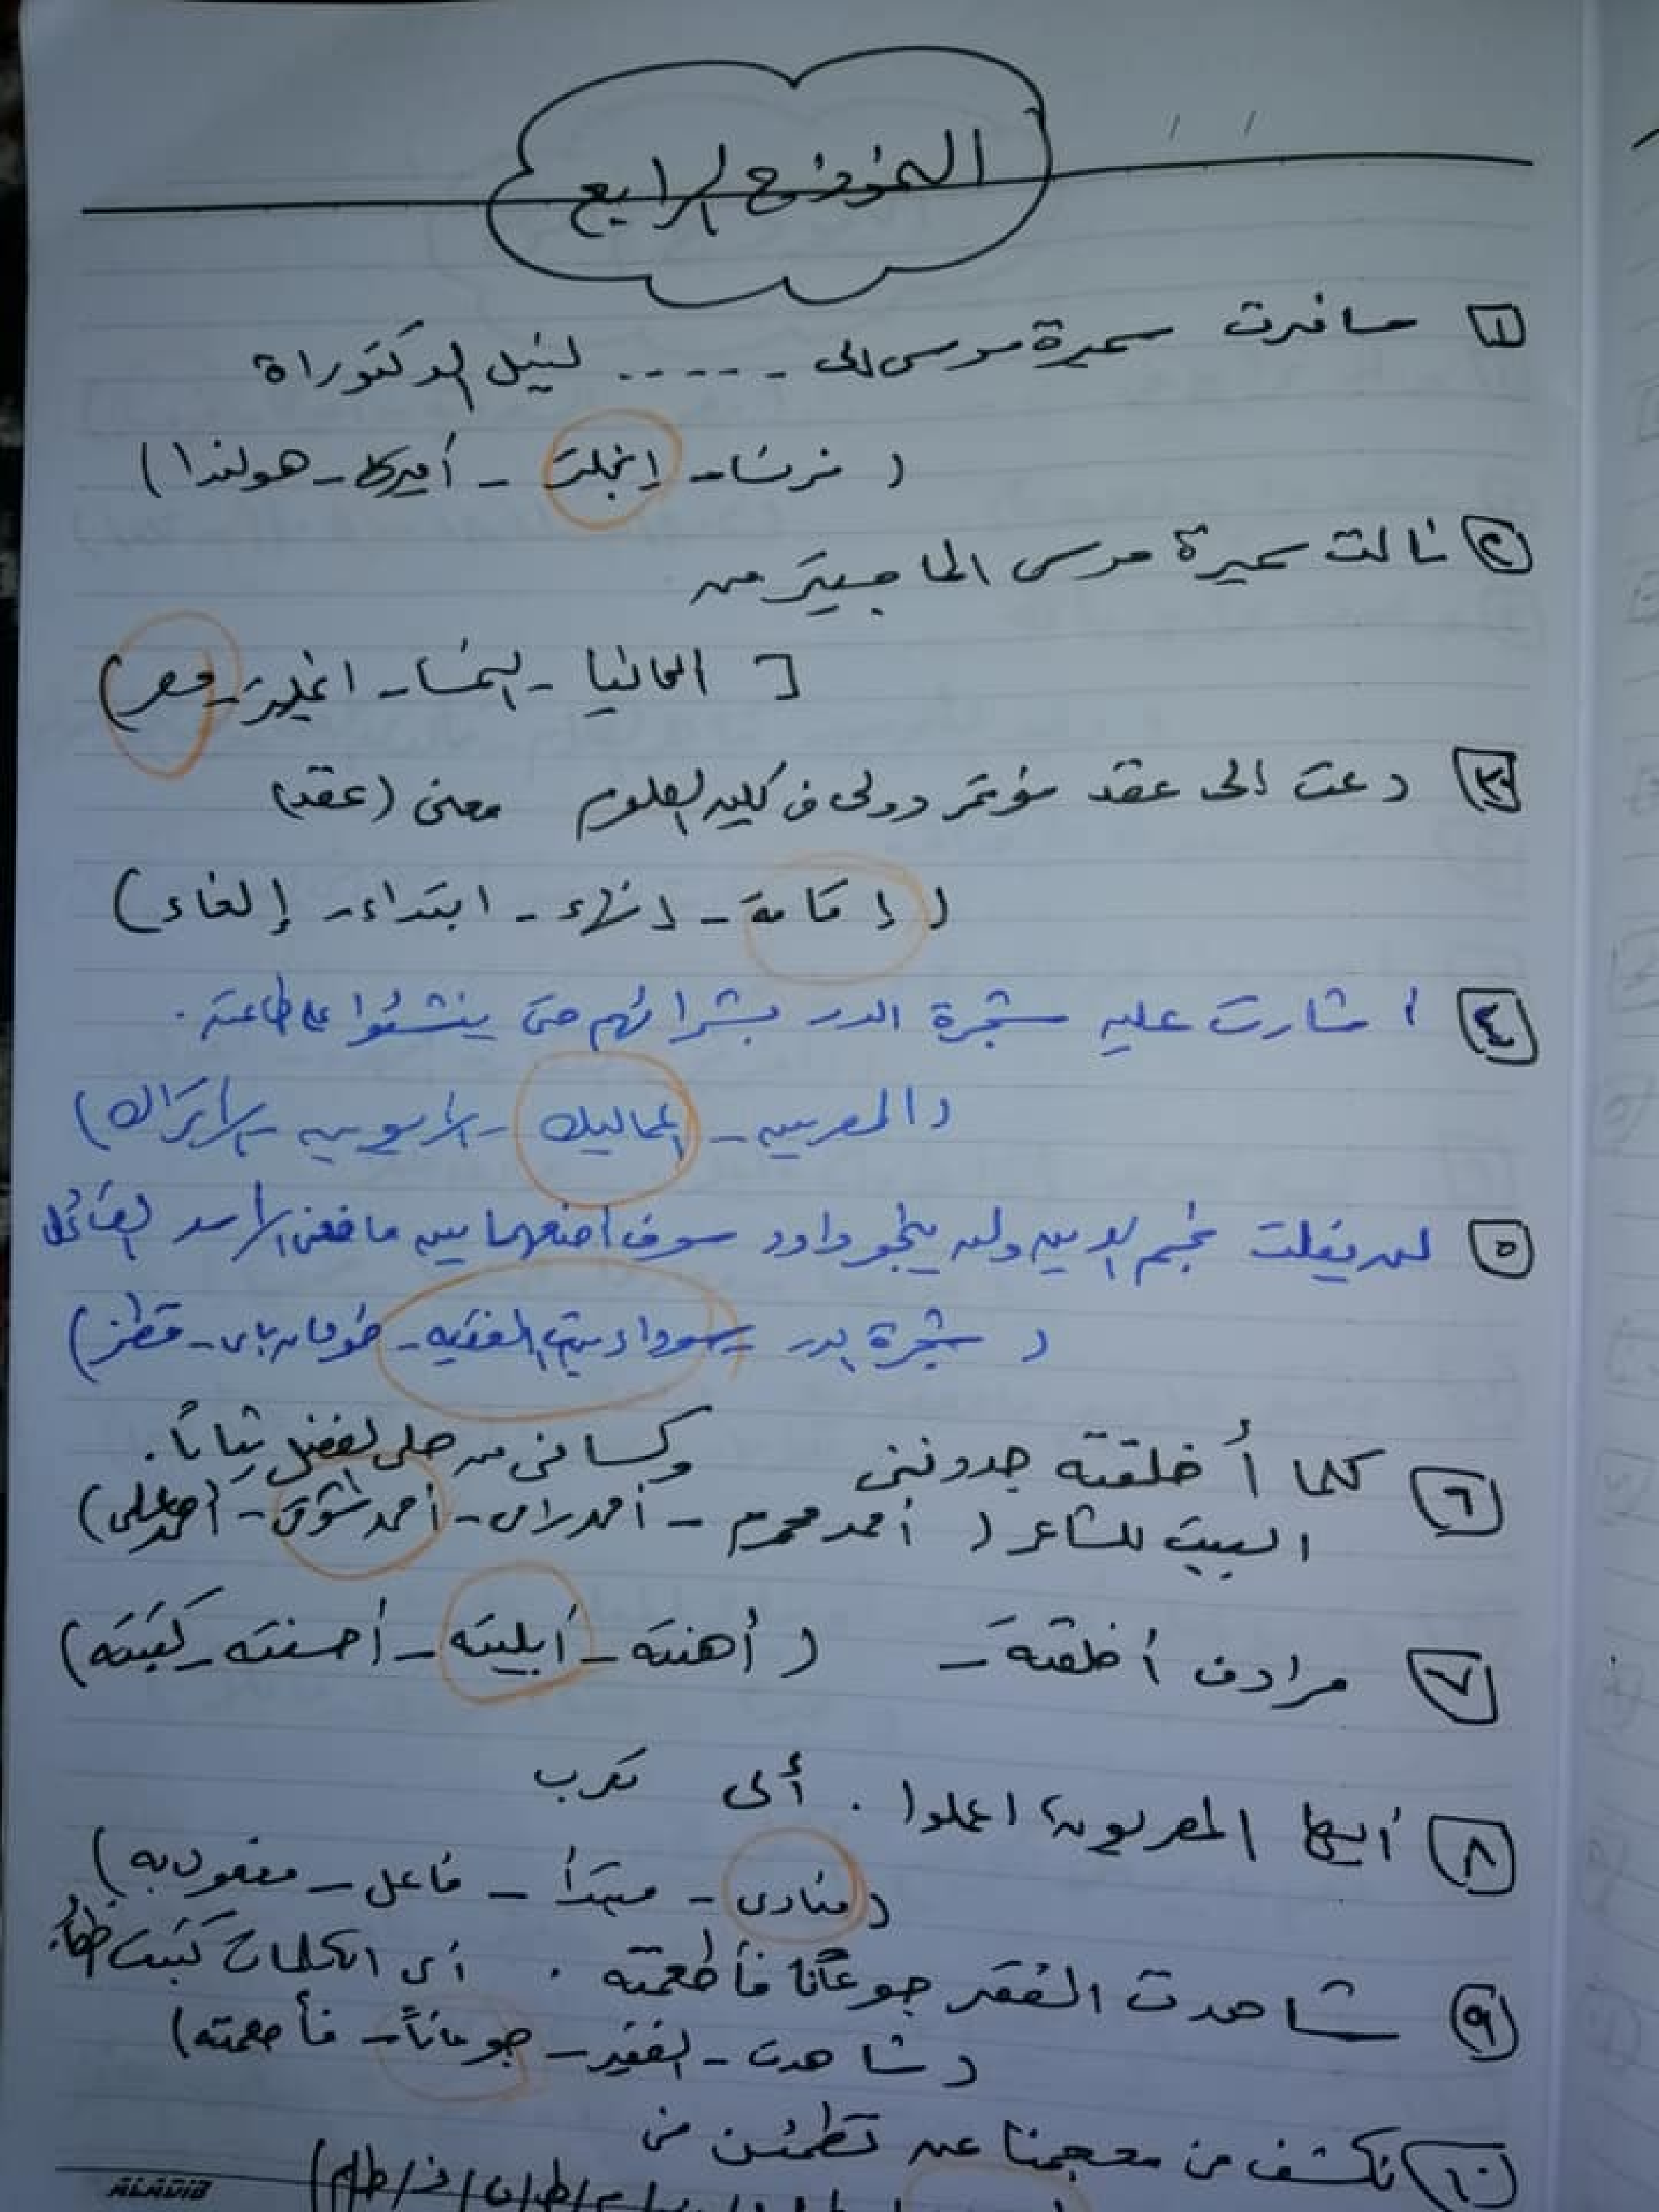 النموذج الرابع
١ سافرت سميرة موسى إلى ------ لنيل الدكتوراة
( فرنسا - إنجلترا - أمريكا - هولندا )
٢ نالت سميرة موسى الماجستير من
[ ألمانيا - النمسا - انجلترا - مصر )
٣ دعت إلى عقد مؤتمر دولى فى كلية العلوم معنى (عقد)
( إقامة - إنهاء - ابتداء - إلغاء )
٤ أشارت عليه شجرة الدر بشرائهم حتى ينشئوا على طاعته .
( المصريين - المماليك - الأيوبيين - الأتراك )
٥ لن يفلت نجم الدين ولن ينجو داود سوف أضعهما بين ماضغى الأسد القائل
( شجرة الدر - سوداء بنت الفقيه - طومان باى - قطز )
٦ كلما أخلقته جددننى وكسانى من حلى الفضل ثيابًا .
البيت للشاعر ( أحمد محرم - أحمد رامى - أحمد شوقى - أحمد على )
٧ مرادف أخلقته - ( أهنته - أبليته - أحسنته - كتبته )
٨ أيها المصريون، اعملوا . أى تعرب
( منادى - مبتدأ - فاعل - مفعول به )
٩ شاهدت الفقير جوعانًا فأطعمته . أى الكلمات كتبت خطأ.
( شاهدت - الفقير - جوعانًا - فأطعمته )
١٠ نكشف فى معجمنا عن تطمئن فى
ALADIB